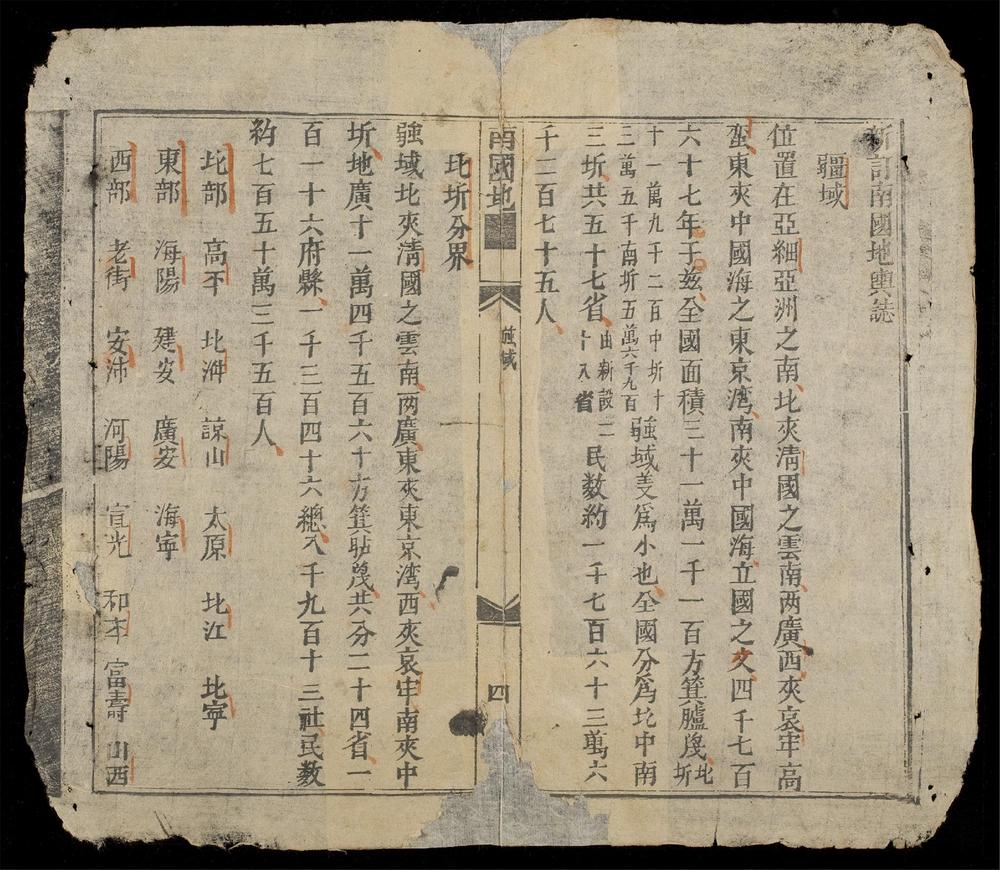 新訂南國地輿誌
疆域
位置在亞細亞洲之南北夾清國之雲南两廣西夾哀牢高
蛮東夾中國海之東京湾南夾中國海立國之文四千七百
六十七年于兹全國面積三十一萬一千一百方箕臚㦖北圻
十一萬九千二百中圻十
三萬五千南圻五萬六千九百
疆域羙爲小也全國分爲北中南
三圻共五十七省由新設二
十八省
民数約一千七百六十三萬六
千二百七十五人
南國地
疆域
四
北圻分界
疆域北夾清國之雲南两廣東夾東京湾西夾哀牢南夾中
圻地廣十一萬四千五百六十方箕𩧍㦖共分二十四省一
百一十六府縣一千三百四十六總八千九百十三社民数
約七百五十萬三千五百人
北部 高平 北浄 諒山 太原 北江 北寧
東部 海陽 建安 廣安 海寧
西部 老街 安沛 河陽 宣光 和平 富壽 山西